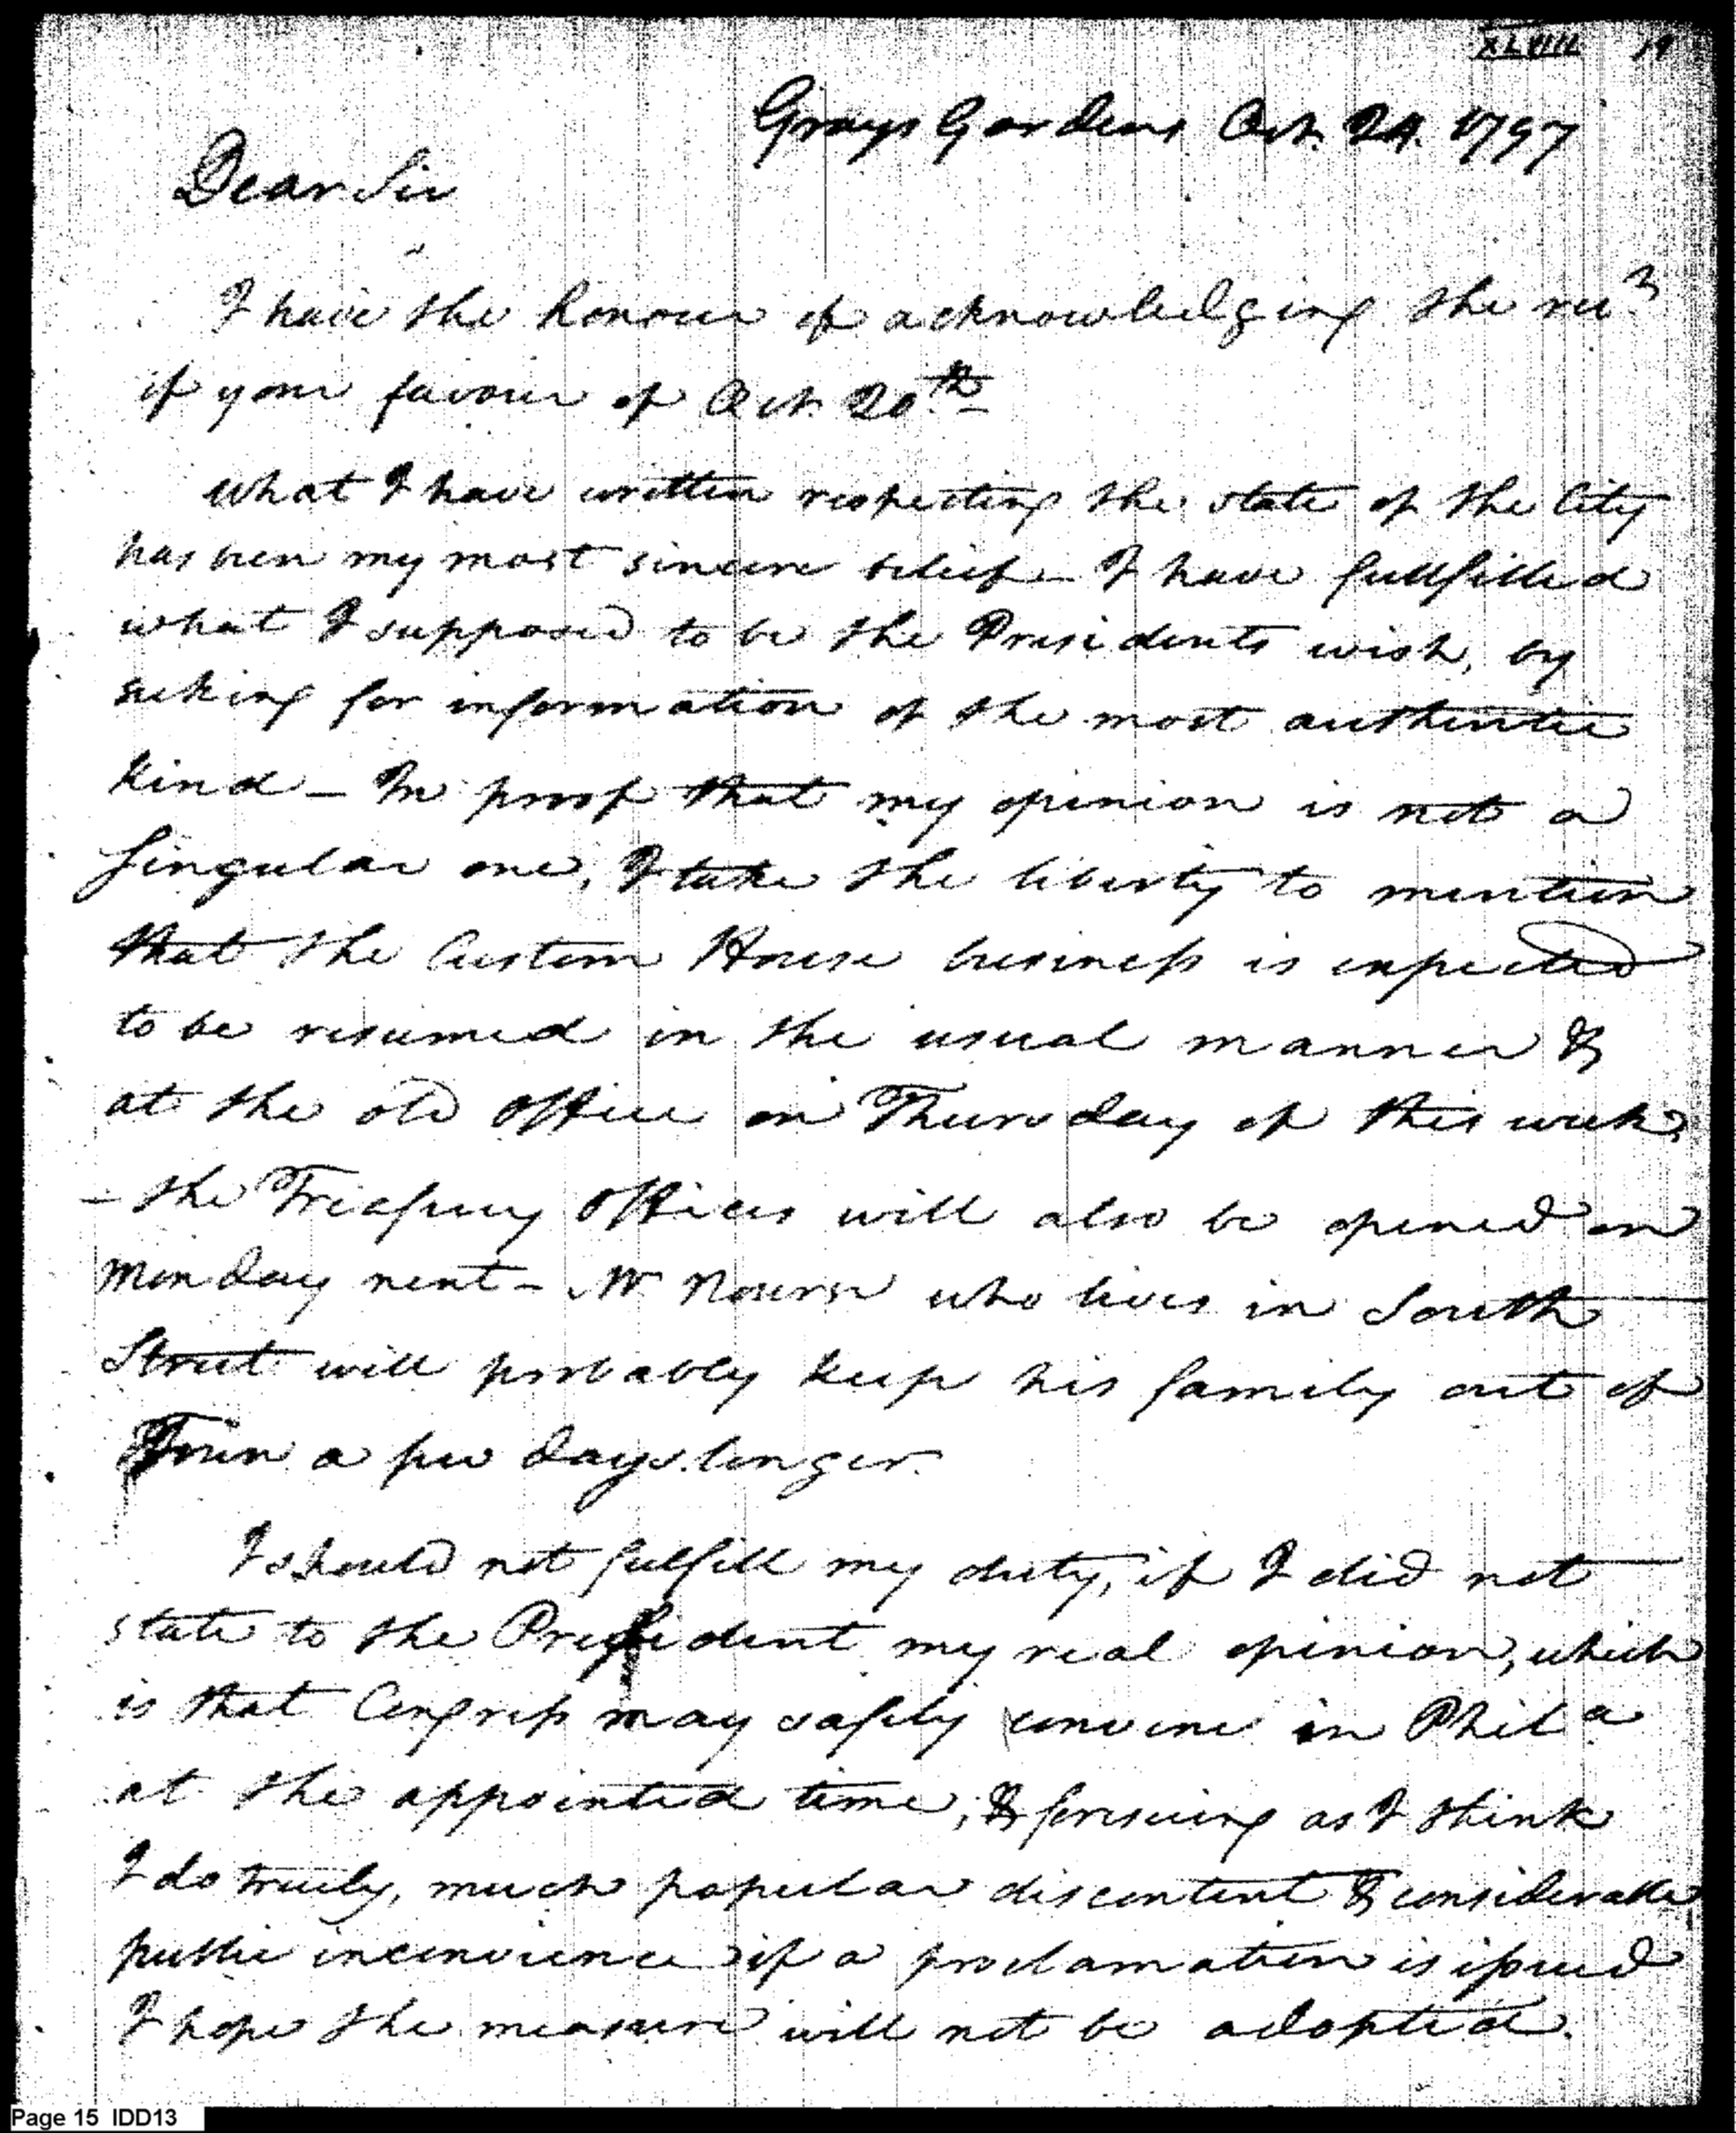 XLVIII 19
Grays Gardens Oct. 24. 1797
Dear Sir
I have the honour of acknowledging the
of your favour of Oct. 20th
what I have written respecting the state of the City
has been my most sincere belief - I have fullfilled
what I supposed to be the Presidents wish, by
seeking for information of the most authentic
kind - In proof that my opinion is not a
Singular one, I take the liberty to mention
that the Custom House business is expected
to be resumed in the usual manner &
at the old office on Thursday of this week,
- the Treasury Offices will also be opened on
Monday next - Mr Nourse who lives in South
Street will probably keep his family out of
Town a few days longer.
I should not fulfill my duty, if I did not
state to the President my real opinion, which
is that Congress may safely convene in Phila
at the appointed time, & foreseeing as I think
I do truely, much popular discontent & considerable
public inconvience if a proclamation is issued
I hope the measure will not be adopted.
Page 15 IDD13